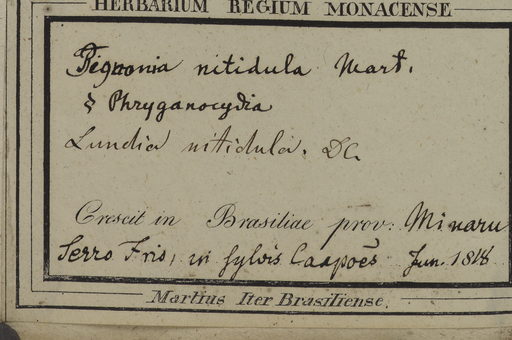 HERBARIUM REGIUM MONACENSE
Bignonia nitidula Mart.
§ Phryganocydia
Lundia nitidula. DC.
Crescit in Brasiliae prov: Minarum
Serro Frio, in sylvis Caapoës Jun. 1818
Martius Iter Brasiliense.